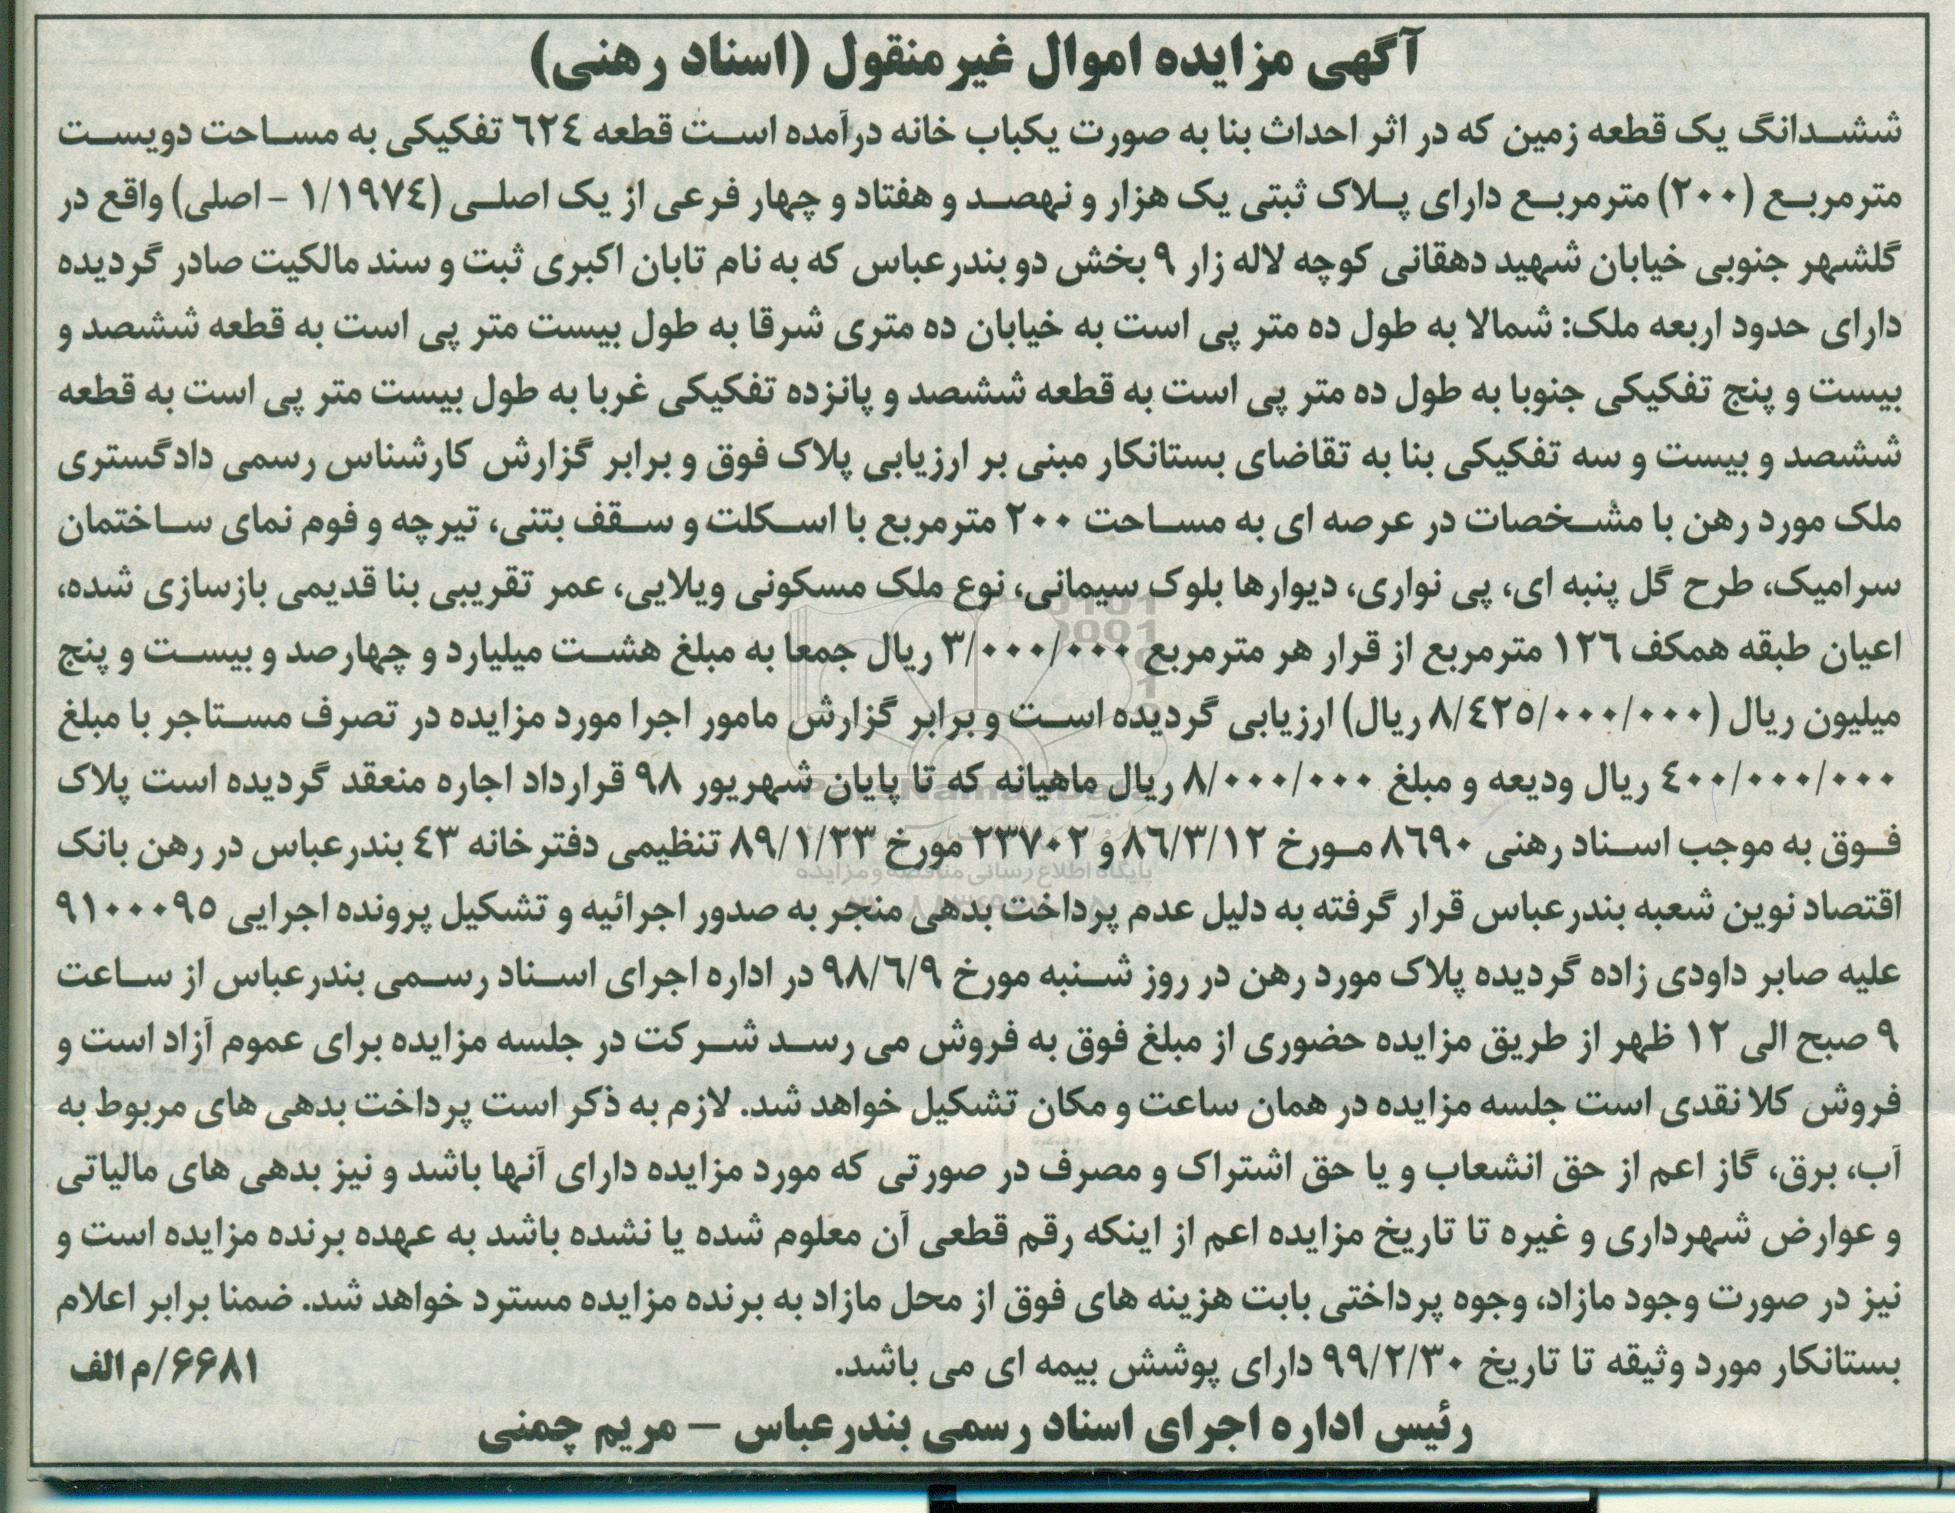 آگهی مزایده اموال غیرمنقول (اسناد رهنی)
ششدانگ یک قطعه زمین که در اثر احداث بنا به صورت یکباب خانه درآمده است قطعه ٦٢٤ تفکیکی به مساحت دویست
مترمربع (٢٠٠) مترمربع دارای پلاک ثبتی یک هزار و نهصد و هفتاد و چهار فرعی از یک اصلی (١/١٩٧٤ - اصلی) واقع در
گلشهر جنوبی خیابان شهید دهقانی کوچه لاله زار ٩ بخش دو بندرعباس که به نام تابان اکبری ثبت و سند مالکیت صادر گردیده
دارای حدود اربعه ملک: شمالا به طول ده متر پی است به خیابان ده متری شرقا به طول بیست متر پی است به قطعه ششصد و
بیست و پنج تفکیکی جنوبا به طول ده متر پی است به قطعه ششصد و پانزده تفکیکی غربا به طول بیست متر پی است به قطعه
ششصد و بیست و سه تفکیکی بنا به تقاضای بستانکار مبنی بر ارزیابی پلاک فوق و برابر گزارش کارشناس رسمی دادگستری
ملک مورد رهن با مشخصات در عرصه ای به مساحت ٢٠٠ مترمربع با اسکلت و سقف بتنی، تیرچه و فوم نمای ساختمان
سرامیک، طرح گل پنبه ای، پی نواری، دیوارها بلوک سیمانی، نوع ملک مسکونی ویلایی، عمر تقریبی بنا قدیمی بازسازی شده،
اعیان طبقه همکف ١٢٦ مترمربع از قرار هر مترمربع ٣/٠٠٠/٠٠٠ ریال جمعا به مبلغ هشت میلیارد و چهارصد و بیست و پنج
میلیون ریال (٨/٤٢٥/٠٠٠/٠٠٠ ریال) ارزیابی گردیده است و برابر گزارش مامور اجرا مورد مزایده در تصرف مستاجر با مبلغ
٤٠٠/٠٠٠/٠٠٠ ریال ودیعه و مبلغ ٨/٠٠٠/٠٠٠ ریال ماهیانه که تا پایان شهریور ٩٨ قرارداد اجاره منعقد گردیده است پلاک
فوق به موجب اسناد رهنی ٨٦٩٠ مورخ ٨٦/٣/١٢ و ٢٣٧٠٢ مورخ ٨٩/١/٢٣ تنظیمی دفترخانه ٤٣ بندرعباس در رهن بانک
اقتصاد نوین شعبه بندرعباس قرار گرفته به دلیل عدم پرداخت بدهی منجر به صدور اجرائیه و تشکیل پرونده اجرایی ٩١٠٠٠٩٥
علیه صابر داودی زاده گردیده پلاک مورد رهن در روز شنبه مورخ ٩٨/٦/٩ در اداره اجرای اسناد رسمی بندرعباس از ساعت
٩ صبح الی ١٢ ظهر از طریق مزایده حضوری از مبلغ فوق به فروش می رسد شرکت در جلسه مزایده برای عموم آزاد است و
فروش کلا نقدی است جلسه مزایده در همان ساعت و مکان تشکیل خواهد شد. لازم به ذکر است پرداخت بدهی های مربوط به
آب، برق، گاز اعم از حق انشعاب و یا حق اشتراک و مصرف در صورتی که مورد مزایده دارای آنها باشد و نیز بدهی های مالیاتی
و عوارض شهرداری و غیره تا تاریخ مزایده اعم از اینکه رقم قطعی آن معلوم شده یا نشده باشد به عهده برنده مزایده است و
نیز در صورت وجود مازاد، وجوه پرداختی بابت هزینه های فوق از محل مازاد به برنده مزایده مسترد خواهد شد. ضمنا برابر اعلام
بستانکار مورد وثیقه تا تاریخ ٩٩/٢/٣٠ دارای پوشش بیمه ای می باشد. ۶۶۸۱/م الف
رئیس اداره اجرای اسناد رسمی بندرعباس – مریم چمنی
پایگاه اطلاع رسانی مناقصه و مزایده